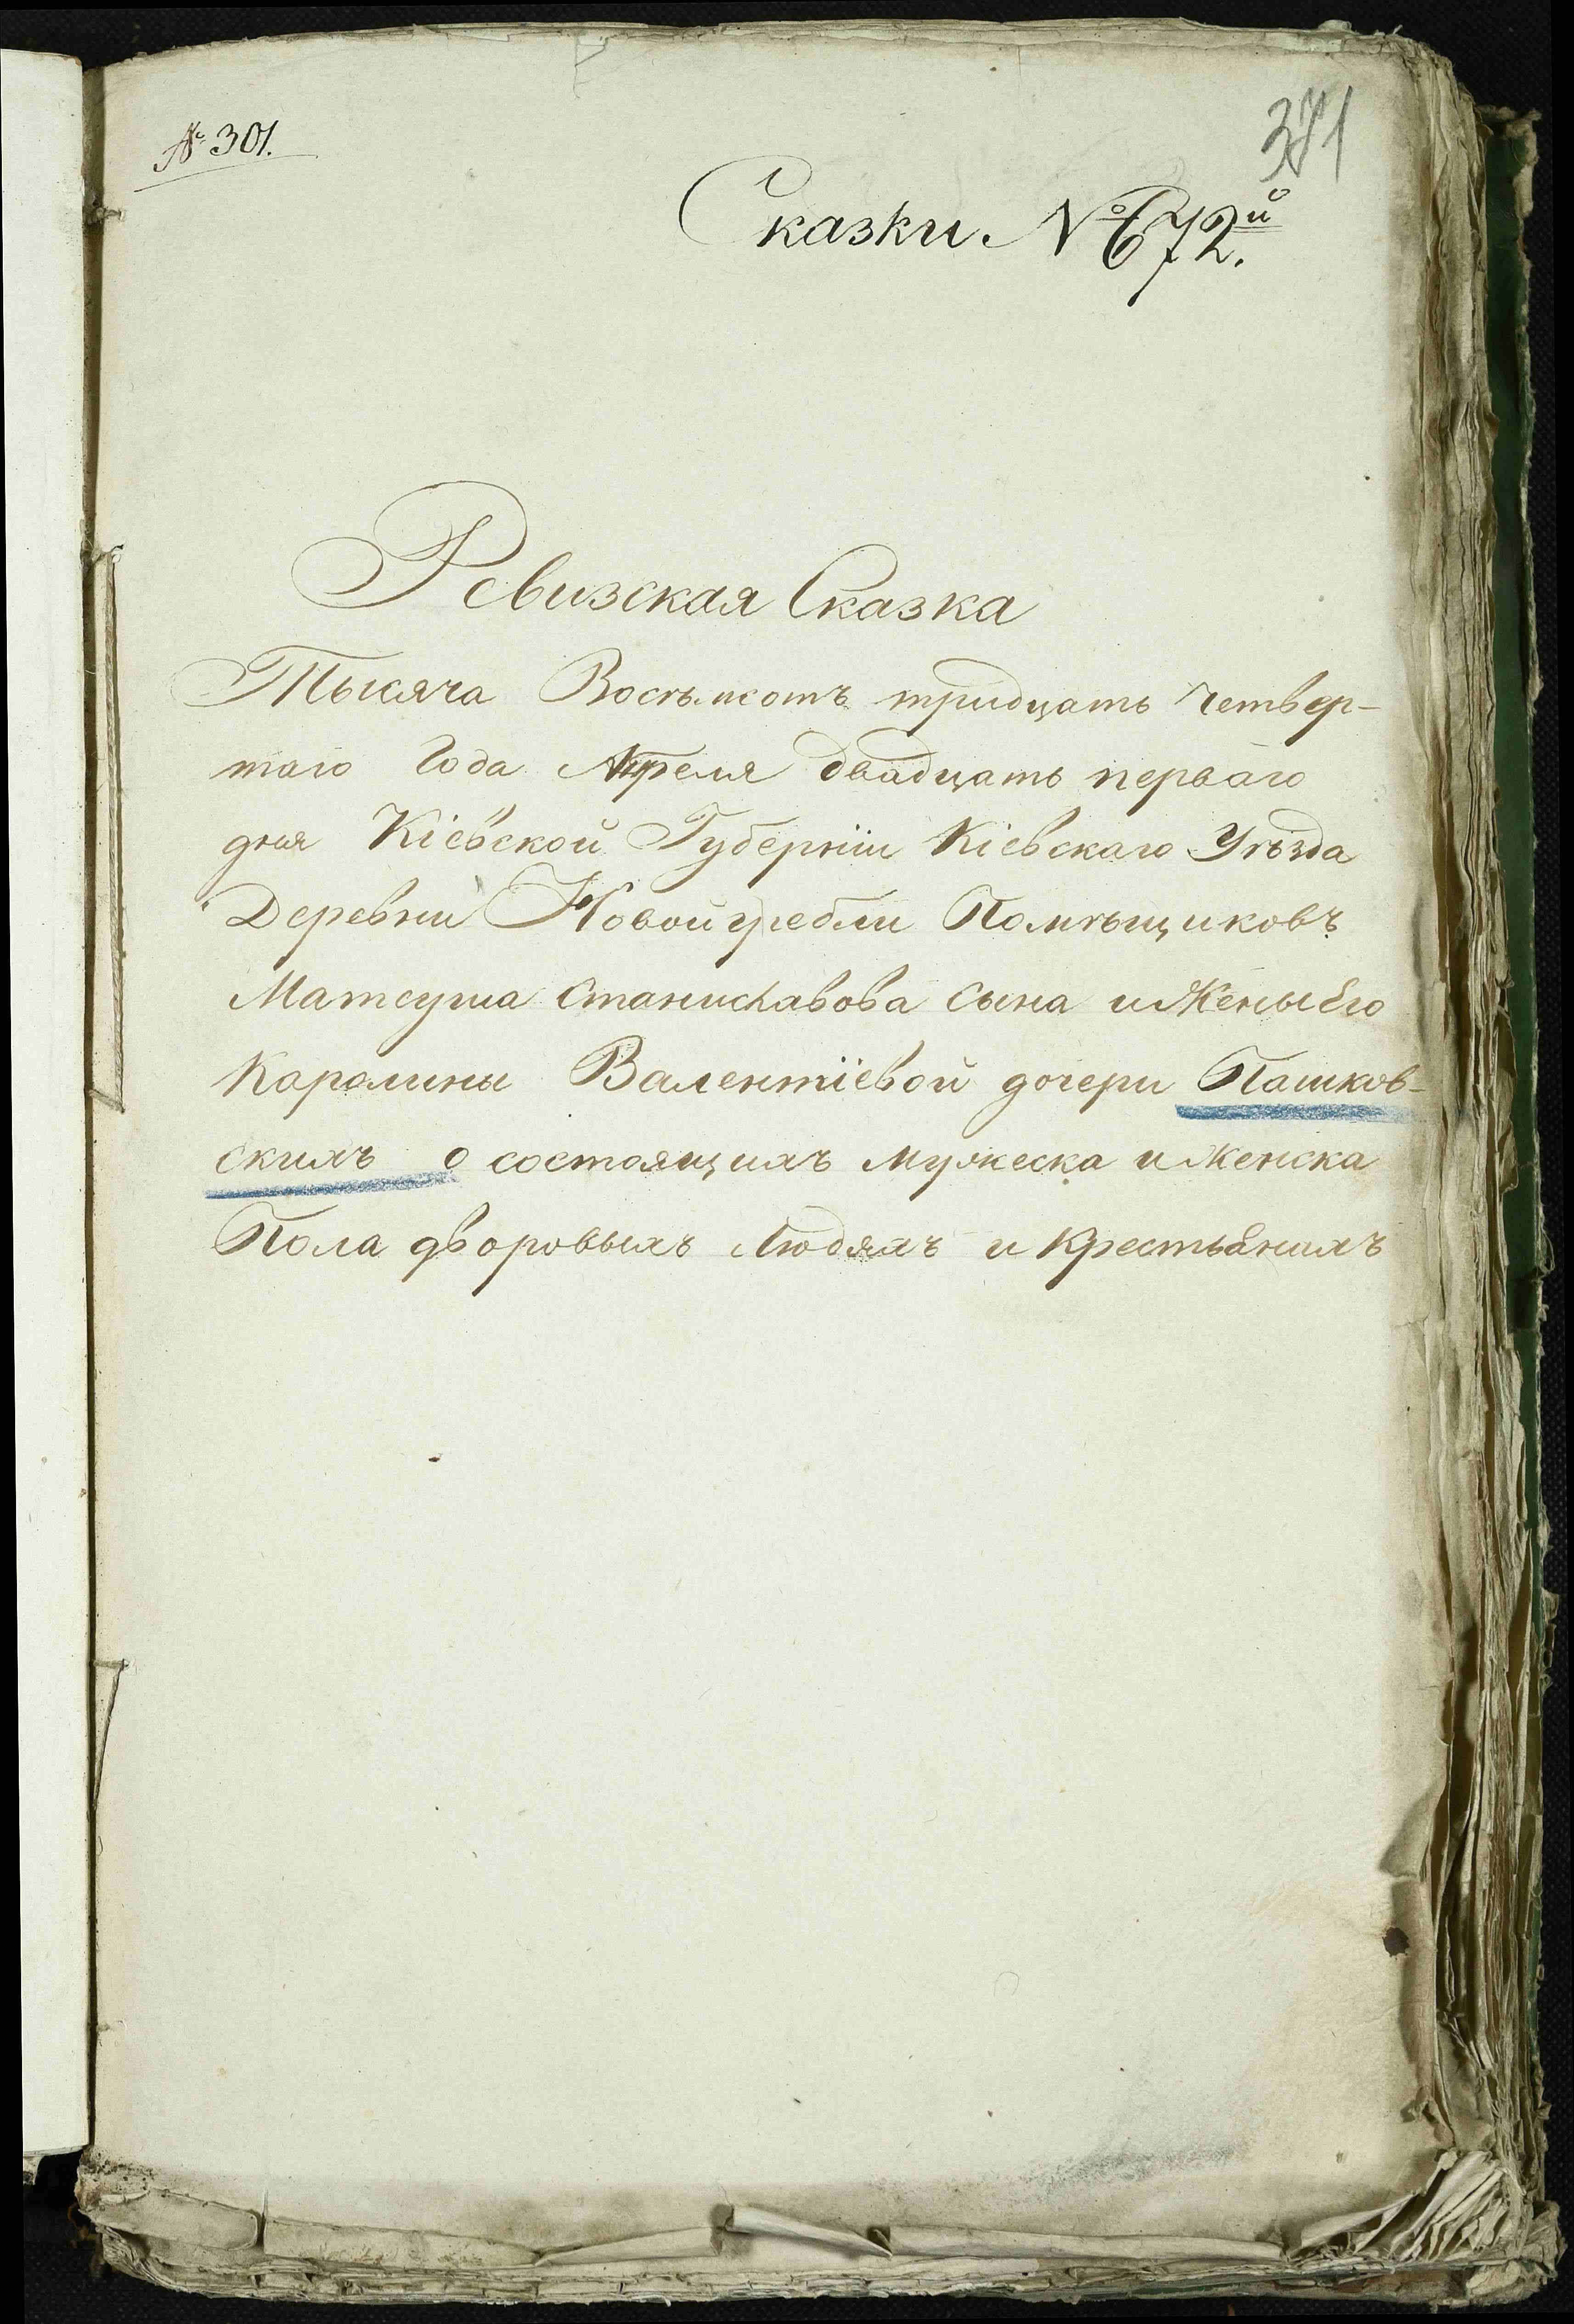 № 301.
371
Сказки № 672й.
Ревизская Сказка
Тысяча Восѣмсотъ тридцать четвер-
таго Года Апреля двадцать перваго
дня Кіевской Губерніи Кіевскаго Уѣзда
Деревни Новойгребли Помѣщиковъ
Матеуша Станиславова сына и Жены Его
Каролины Валентіевой дочери Пашков-
скихъ о состоящихъ мужеска и Женска
Пола дворовыхъ Людяхъ и крестьянихъ